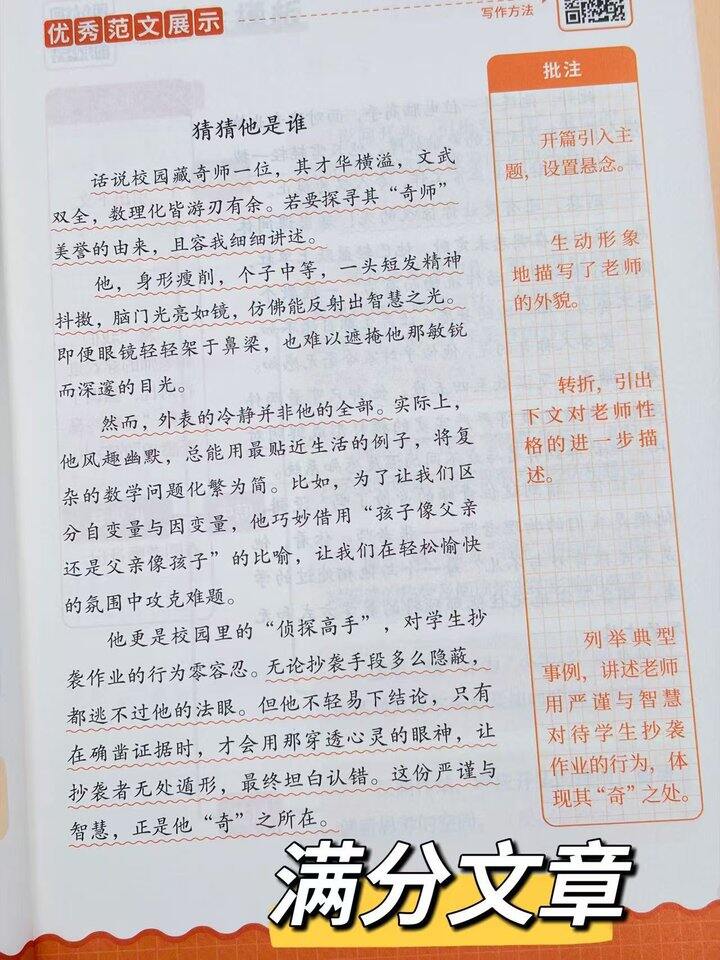 优秀范文展示
写作方法
猜猜他是谁
话说校园藏奇师一位，其才华横溢，文武
双全，数理化皆游刃有余。若要探寻其“奇师”
美誉的由来，且容我细细讲述。
他，身形瘦削，个子中等，一头短发精神
抖擞，脑门光亮如镜，仿佛能反射出智慧之光。
即便眼镜轻轻架于鼻梁，也难以遮掩他那敏锐
而深邃的目光。
然而，外表的冷静并非他的全部。实际上，
他风趣幽默，总能用最贴近生活的例子，将复
杂的数学问题化繁为简。比如，为了让我们区
分自变量与因变量，他巧妙借用“孩子像父亲
还是父亲像孩子”的比喻，让我们在轻松愉快
的氛围中攻克难题。
他更是校园里的“侦探高手”，对学生抄
袭作业的行为零容忍。无论抄袭手段多么隐蔽，
都逃不过他的法眼。但他不轻易下结论，只有
在确凿证据时，才会用那穿透心灵的眼神，让
抄袭者无处遁形，最终坦白认错。这份严谨与
智慧，正是他“奇”之所在。
批注
开篇引入主
题，设置悬念。
生动形象
地描写了老师
的外貌。
转折，引出
下文对老师性
格的进一步描
述。
列举典型
事例，讲述老师
用严谨与智慧
对待学生抄袭
作业的行为，体
现其“奇”之处。
满分文章